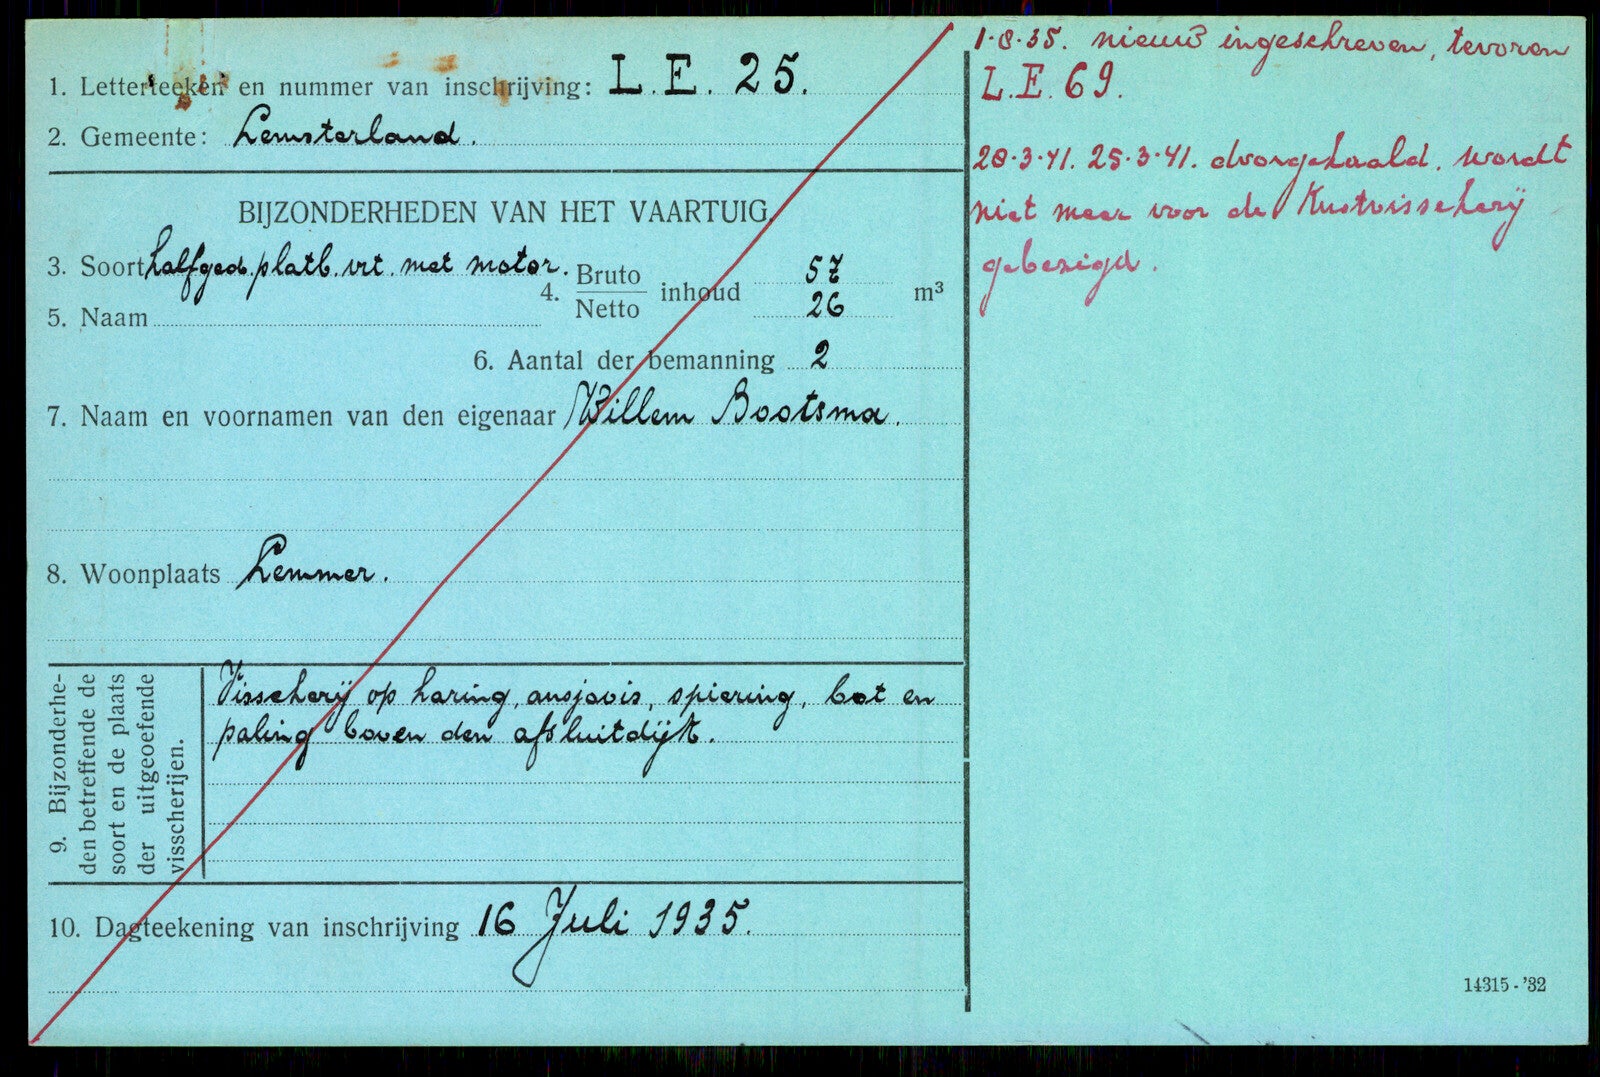 1. Letterteeken en nummer van inschrijving: L.E. 25.
2. Gemeente: Lemsterland.
BIJZONDERHEDEN VAN HET VAARTUIG.
3. Soort halfged. platb. vrt. met motor.
4. Bruto inhoud 57 m³
Netto 26
5. Naam
6. Aantal der bemanning 2
7. Naam en voornamen van den eigenaar Willem Bootsma.
8. Woonplaats Lemmer.
9. Bijzonderhe-
den betreffende de
soort en de plaats
der uitgeoefende
visscherijen.
Visscherij op haring, ansjovis, spiering, bot en
paling boven den afsluitdijk.
10. Dagteekening van inschrijving 16 Juli 1935.
1-8-35. nieuw ingeschreven, tevoren
L.E. 69.
28-3-41. 25-3-41. doorgehaald. wordt
niet meer voor de Kustvisscherij
gebezigd.
14315-'32